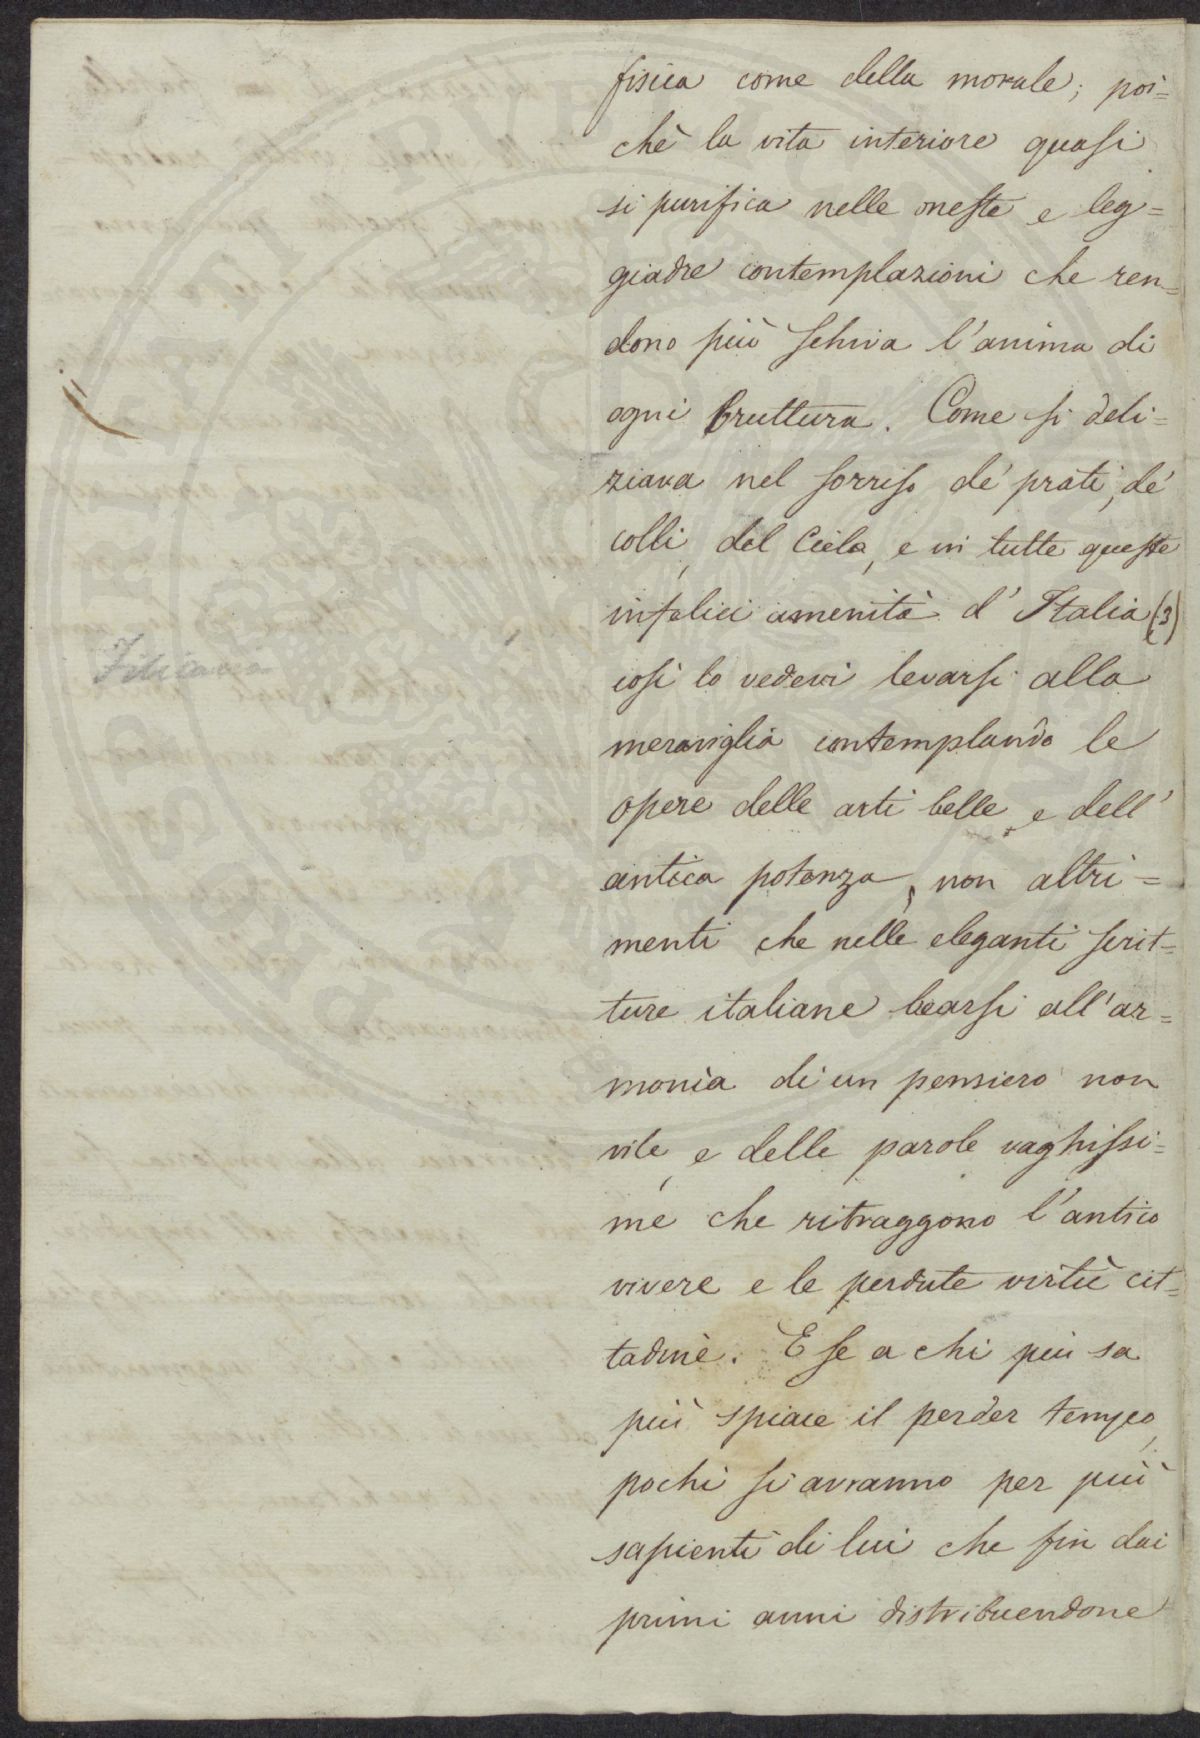 fisica come della morale; poi=
chè la vita interiore quasi
si purifica nelle oneste e leg=
giadre contemplazioni che ren=
dono più schiva l'anima di
ogni bruttura. Come si deli=
ziava nel sorriso de' prati, de'
colli, del Cielo, e in tutte queste
infelici amenità d'Italia (3)
Filicaia
così lo vedevi levarsi alla
meraviglia contemplando le
opere delle arti belle e dell'
antica potenza, non altri=
menti che nelle eleganti scrit=
ture italiane bearsi all'ar=
monia di un pensiero non
vile, e delle parole vaghissi=
me che ritraggono l'antico
vivere e le perdute virtù cit=
tadine. E se a chi più sa
più spiace il perder tempo,
pochi si avranno per più
sapienti di lui che fin dai
primi anni distribuendone